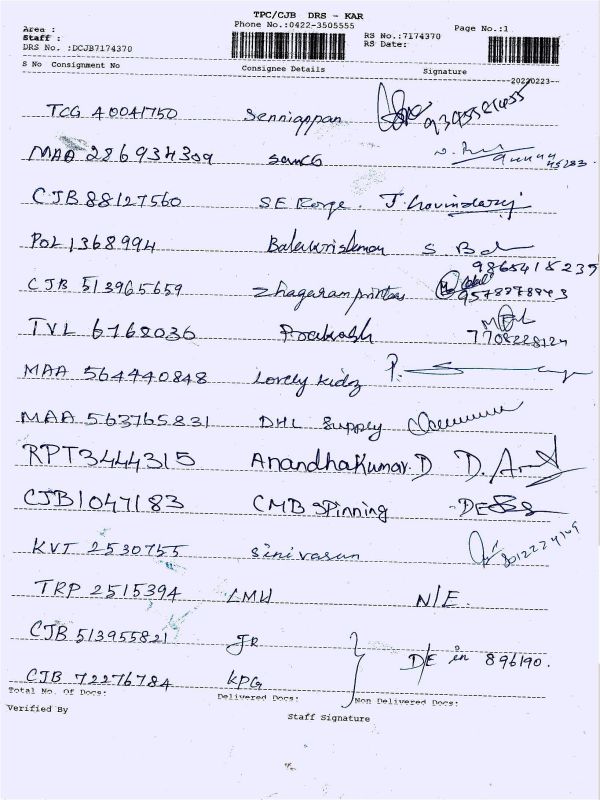 TPC/CJB DRS - KAR
Area : Phone No.:0422-3505555 Page No.:1
Staff : RS No.:7174370
DRS No. :DCJB7174370 RS Date:
S No Consignment No Consignee Details Signature
20220223
TCG 40041750 Senniappan
MAA 286934309 Sanco
CJB 88127560 SE Rorge. J. Govindaraj
POL 1368994 Balakrishnan S. B
9865418239
CJB 513965659 Zhagaram printers 9578878843
TVL 6768036 Prakash
7708228124
MAA 564440848 Lovely Kidz P.
MAA 563765831 DHL Supply
RPT3444315 Anandhakumar. D D.
CJB1047183 CMB Spinning
KVT 2530755 Sinivasan 8012224109
TRP 2515394 LMW N/E.
CJB 513955821 JR
D/E in 896190.
CJB 72276784 KPG
Total No. Of Docs: Delivered Docs: Non Delivered Docs:
Verified By Staff Signature